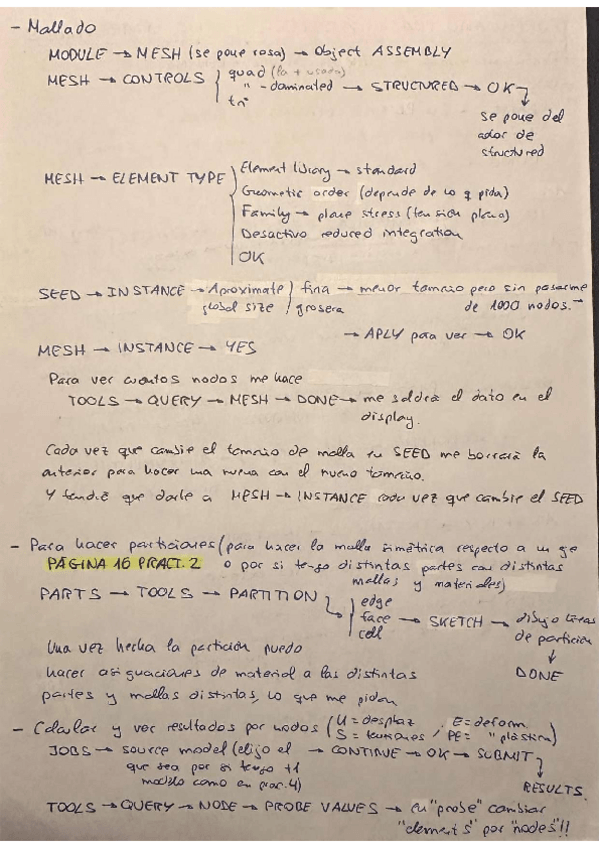 - Mallado
MODULE → MESH (se pone rosa) → Object ASSEMBLY
MESH → CONTROLS { quad (la + usada)
" - dominated → STRUCTURED → OK
tri
se pone del
color de
structured
MESH → ELEMENT TYPE { Element library → standard
Geometic order (depende de lo q pida)
Family → plane stress (tensión plana)
Desactivo reduced integration
OK
SEED → INSTANCE → Aproximate / fina → menor tamaño pero sin pasarme
global size / grosera de 1000 nodos.
→ APLY para ver → OK
MESH → INSTANCE → YES
Para ver cuantos nodos me hace
TOOLS → QUERY → MESH → DONE → me saldrá el dato en el
display.
Cada vez que cambie el tamaño de malla en SEED me borrará la
anterior para hacer una nueva con el nuevo tamaño.
Y tendré que darle a MESH → INSTANCE cada vez que cambie el SEED
- Para hacer particiones (para hacer la malla simétrica respecto a un eje
PÁGINA 16 PRACT. 2 o por si tengo distintas partes con distintas
mallas y materiales)
PARTS → TOOLS → PARTITION { edge
face → SKETCH → dibujo líneas
cell de partición
Una vez hecha la partición puedo
hacer asignaciones de material a las distintas DONE
partes y mallas distintas, lo que me pidan
- Calcular y ver resultados por nodos (U = desplaz E = deform
S = tensiones / PE = " plástica)
JOBS → source model (elijo el → CONTINUE → OK → SUBMIT
que sea por si tengo +1
modelo como en prac. 4) RESULTS
TOOLS → QUERY → NODE → PROBE VALUES → en "probe" cambiar
"elements" por "nodes"!!